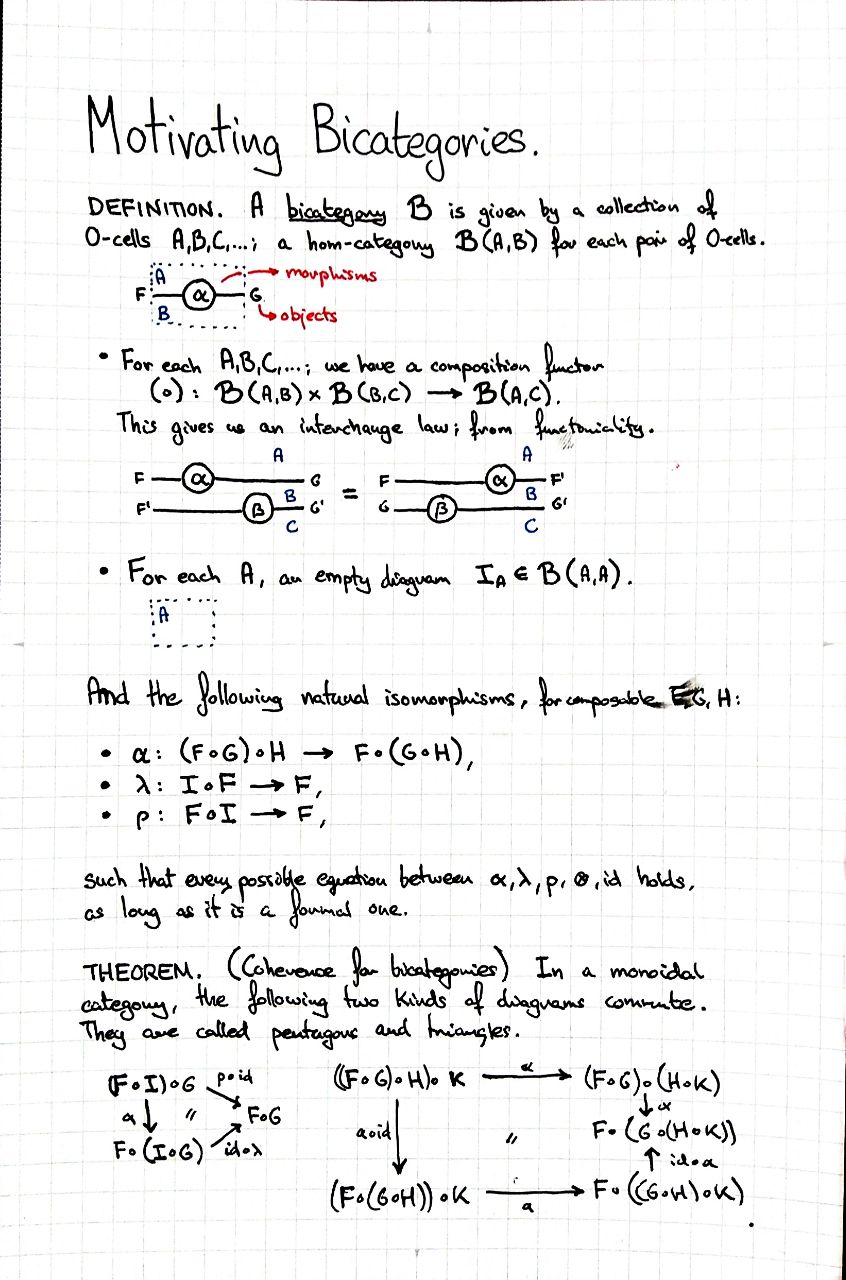 Motivating Bicategories.
DEFINITION. A bicategory B is given by a collection of
0-cells A,B,C,...; a hom-category B(A,B) for each pair of 0-cells.
A → morphisms
F α G
B → objects
• For each A,B,C,...; we have a composition functor
(∘): B(A,B) × B(B,C) → B(A,C).
This gives us an interchange law; from functoriality.
A A
F α G = F α F'
B B
F' β G' G β G'
C C
• For each A, an empty diagram I_A ∈ B(A,A).
A
And the following natural isomorphisms, for composable F,G,H:
• α: (F∘G)∘H → F∘(G∘H),
• λ: I∘F → F,
• ρ: F∘I → F,
such that every possible equation between α,λ,ρ,⊗,id holds,
as long as it is a formal one.
THEOREM. (Coherence for bicategories) In a monoidal
category, the following two kinds of diagrams commute.
They are called pentagons and triangles.
(F∘I)∘G ρ∘id ((F∘G)∘H)∘K α→ (F∘G)∘(H∘K)
α↓ " F∘G ↓α
F∘(I∘G) id∘λ a∘id " F∘(G∘(H∘K))
↑ id∘a
(F∘(G∘H))∘K →a F∘((G∘H)∘K)
.